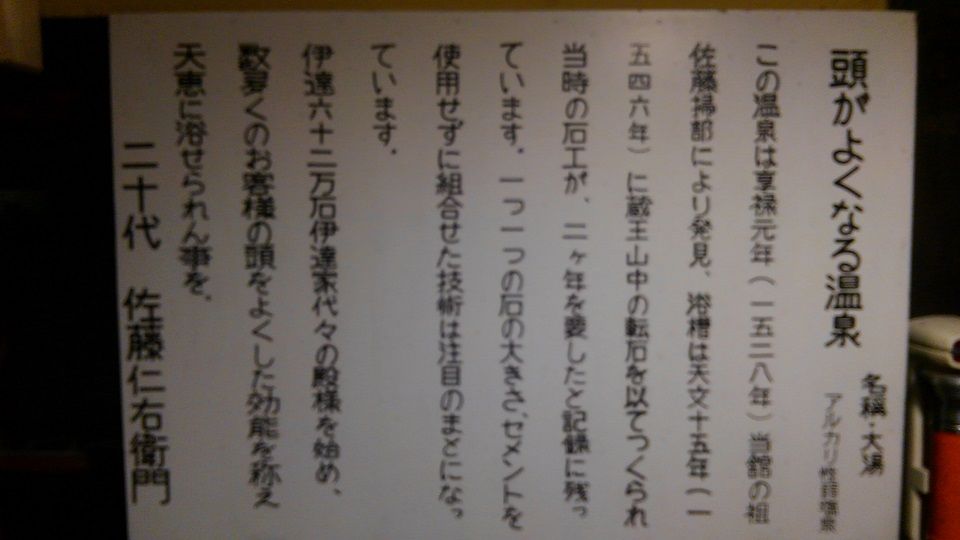 頭がよくなる温泉
名称・大湯
アルカリ性単純泉
この温泉は享禄元年(一五二八年)当舘の祖
佐藤掃部により発見、浴槽は天文十五年(一
五四六年)に蔵王山中の転石を以てつくられ
当時の石工が、二ヶ年を要したと記録に残っ
ています。一つ一つの石の大きさ、セメントを
使用せずに組合せた技術は注目のまとになっ
ています。
伊達六十二万石伊達家代々の殿様を始め、
数多くのお客様の頭をよくした効能を称え
天恵に浴せられん事を。
二十代 佐藤仁右衛門